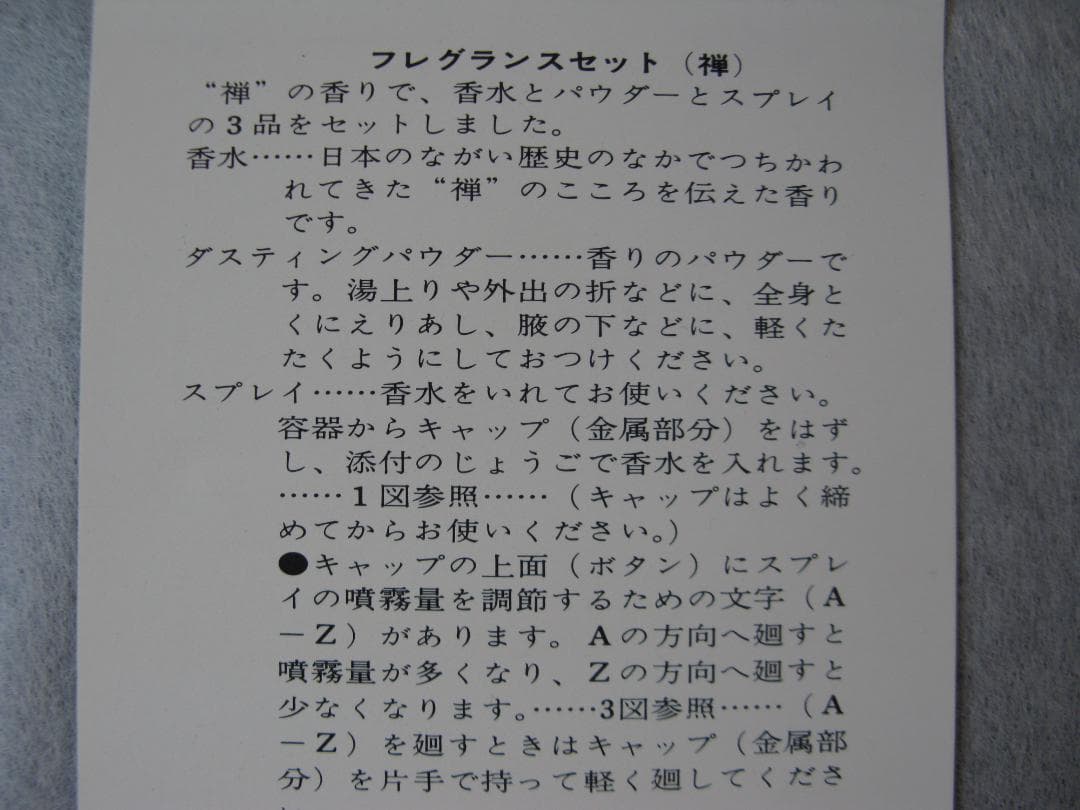 フレグランスセット（禅）
“禅”の香りで、香水とパウダーとスプレイ
の3品をセットしました。
香水……日本のながい歴史のなかでつちかわ
れてきた“禅”のこころを伝えた香り
です。
ダスティングパウダー……香りのパウダーで
す。湯上りや外出の折などに、全身と
くにえりあし、腋の下などに、軽くた
たくようにしておつけください。
スプレイ……香水をいれてお使いください。
容器からキャップ（金属部分）をはず
し、添付のじょうごで香水を入れます。
……1図参照……（キャップはよく締
めてからお使いください。）
●キャップの上面（ボタン）にスプレ
イの噴霧量を調節するための文字（A
－Z）があります。Aの方向へ廻すと
噴霧量が多くなり、Zの方向へ廻すと
少なくなります。……3図参照……（A
－Z）を廻すときはキャップ（金属部
分）を片手で持って軽く廻してくださ